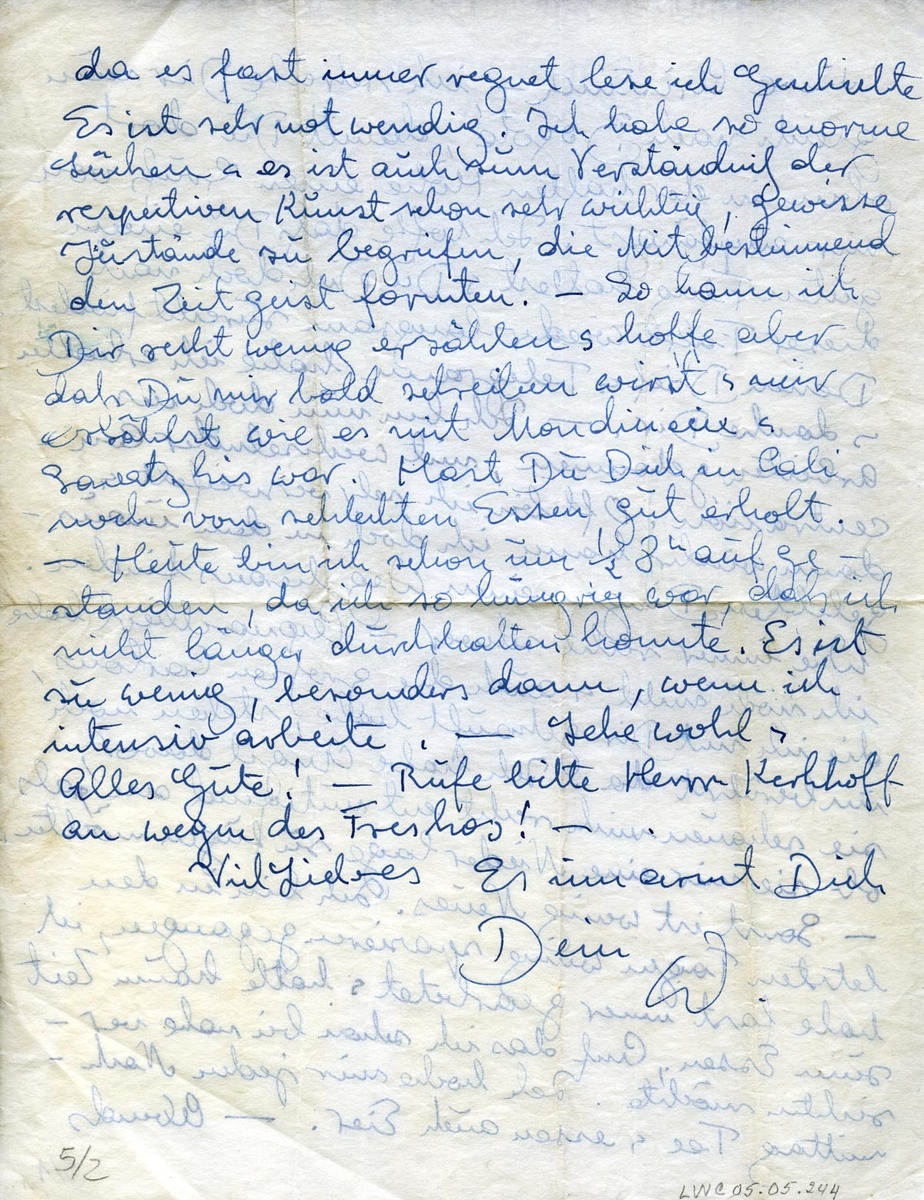 da es fast immer regnet lese ich Geschichte
Es ist sehr notwendig. Ich habe so enorme
Lücken & es ist auch zum Verständnis der
respectiven Kunst schon sehr wichtig, gewisse
Zustände zu begreifen, die mitbestimmend
den Zeitgeist formten. – So kann ich
Dir recht wenig erzählen & hoffe aber
daß Du mir bald schreiben wirst & mir
erzählst wie es mit &
Sawatzkis war. Hast Du Dich in Cali
noch vom schlechten Essen gut erholt.
– Heute bin ich schon um ½ 8h aufge-
standen, da ich so hungrig war, daß ich
nicht länger durchhalten konnte. Es ist
zu wenig, besonders dann, wenn ich
intensiv arbeite. — Lebe wohl &
Alles Gute! — Rufe bitte Herrn Kerkhoff
an wegen des Freskos! –
Viel Liebes Es umarmt Dich
Dein
W
5/2
LWC 05.05.244